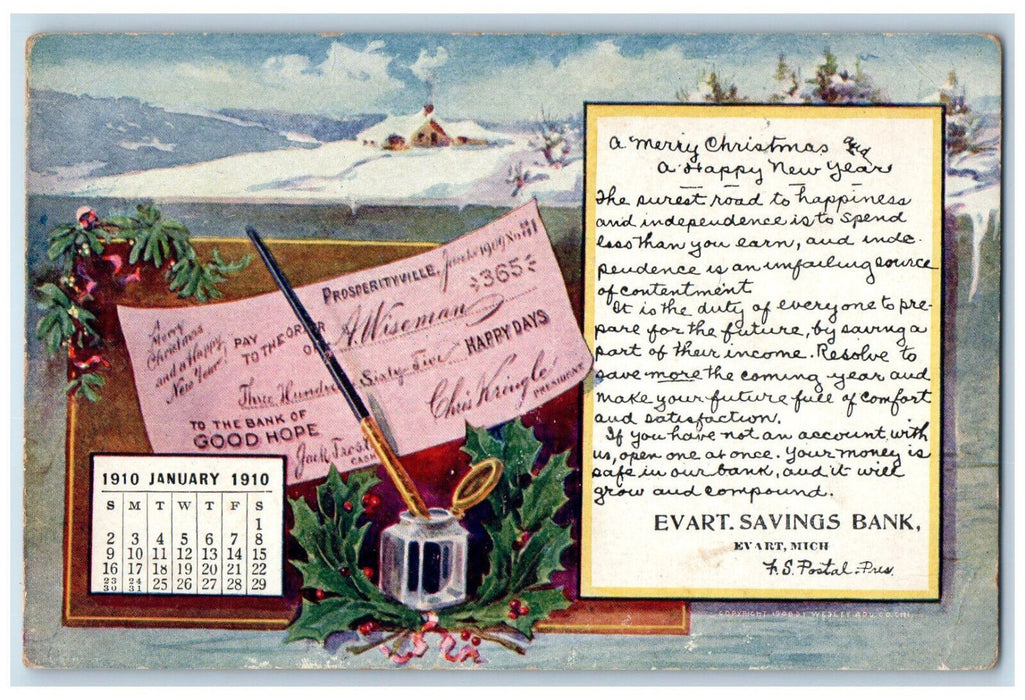 A Merry Christmas and
A Happy New Year
The surest road to happiness
and independence is to spend
less than you earn, and inde-
pendence is an unfailing source
of contentment
It is the duty of everyone to pre-
pare for the future, by saving a
part of their income. Resolve to
save more the coming year and
make your future full of comfort
and satisfaction.
If you have not an account with
us, open one at once. Your money is
safe in our bank, and it will
grow and compound.
EVART. SAVINGS BANK,
EVART, MICH
F. S. Postal. Pres.
PROSPERITYVILLE, 1909 No.
$365
A Merry
Christmas
and a Happy
New Year
PAY
TO THE ORDER
OF
A. Wiseman
Three Hundred Sixty Five HAPPY DAYS
TO THE BANK OF
GOOD HOPE
Chris Kringle
PRESIDENT
Jack Frost
CASH
1910 JANUARY 1910
S M T W T F S
1
2 3 4 5 6 7 8
9 10 11 12 13 14 15
16 17 18 19 20 21 22
23 24 25 26 27 28 29
30 31